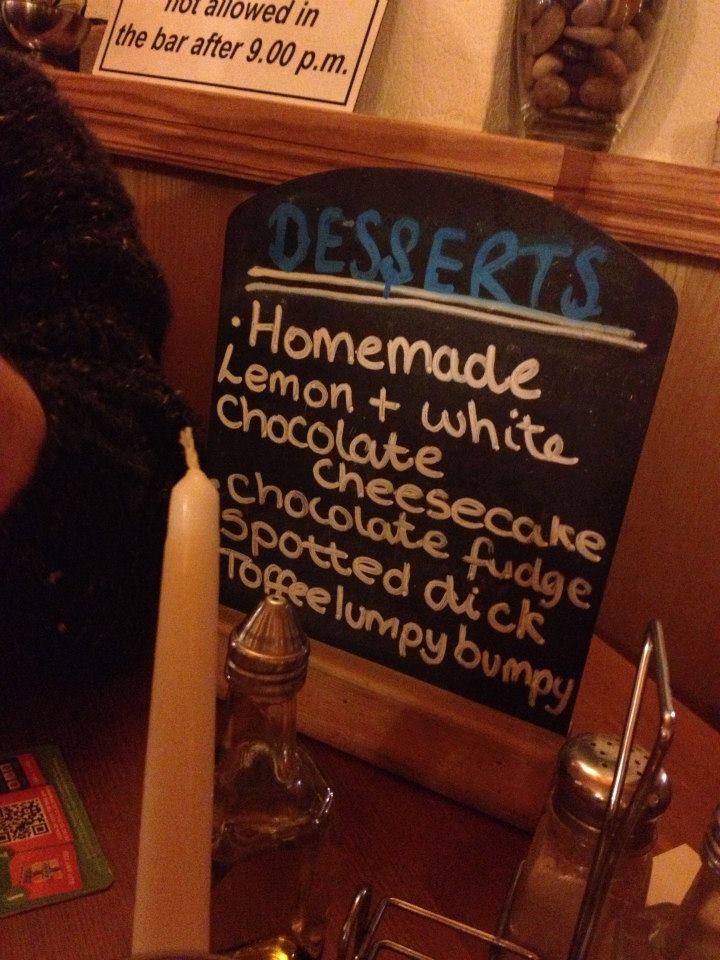 not allowed in
the bar after 9.00 p.m.
DESSERTS
• Homemade
Lemon + white
Chocolate
cheesecake
• Chocolate fudge
Spotted dick
Toffee lumpy bumpy